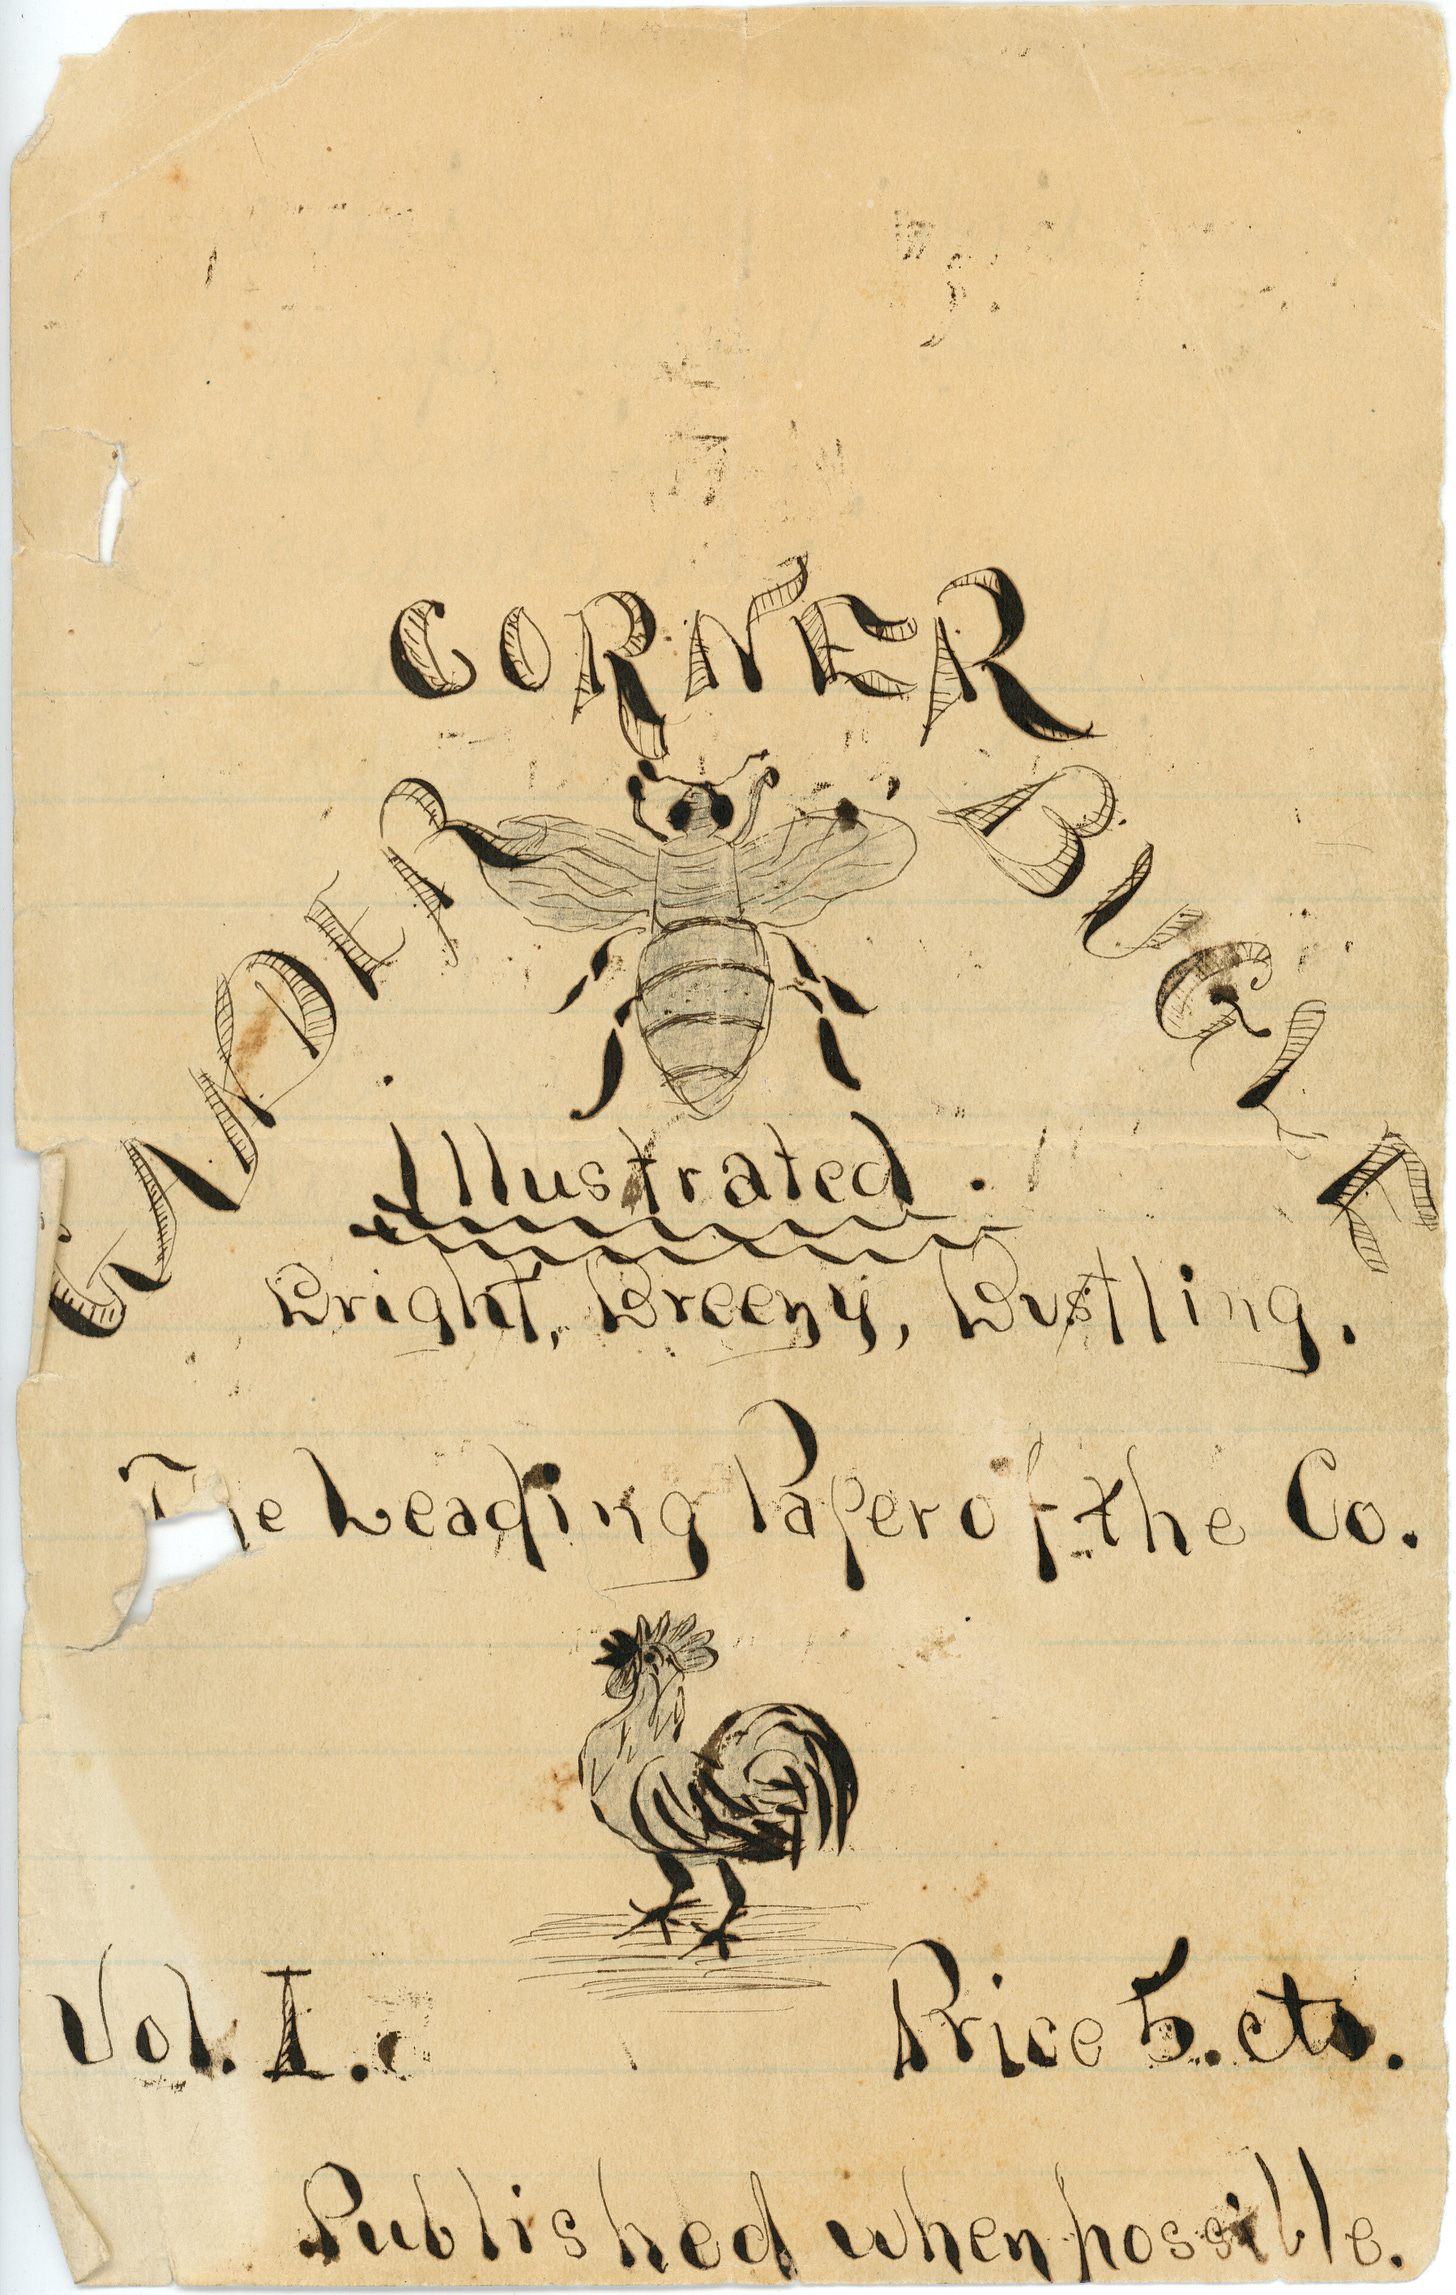 GANDER CORNER BUGLE
Illustrated.
Bright, Breezy, Bustling.
The Leading Paper of the Co.
Vol. I. Price 5. cts.
Published when possible.